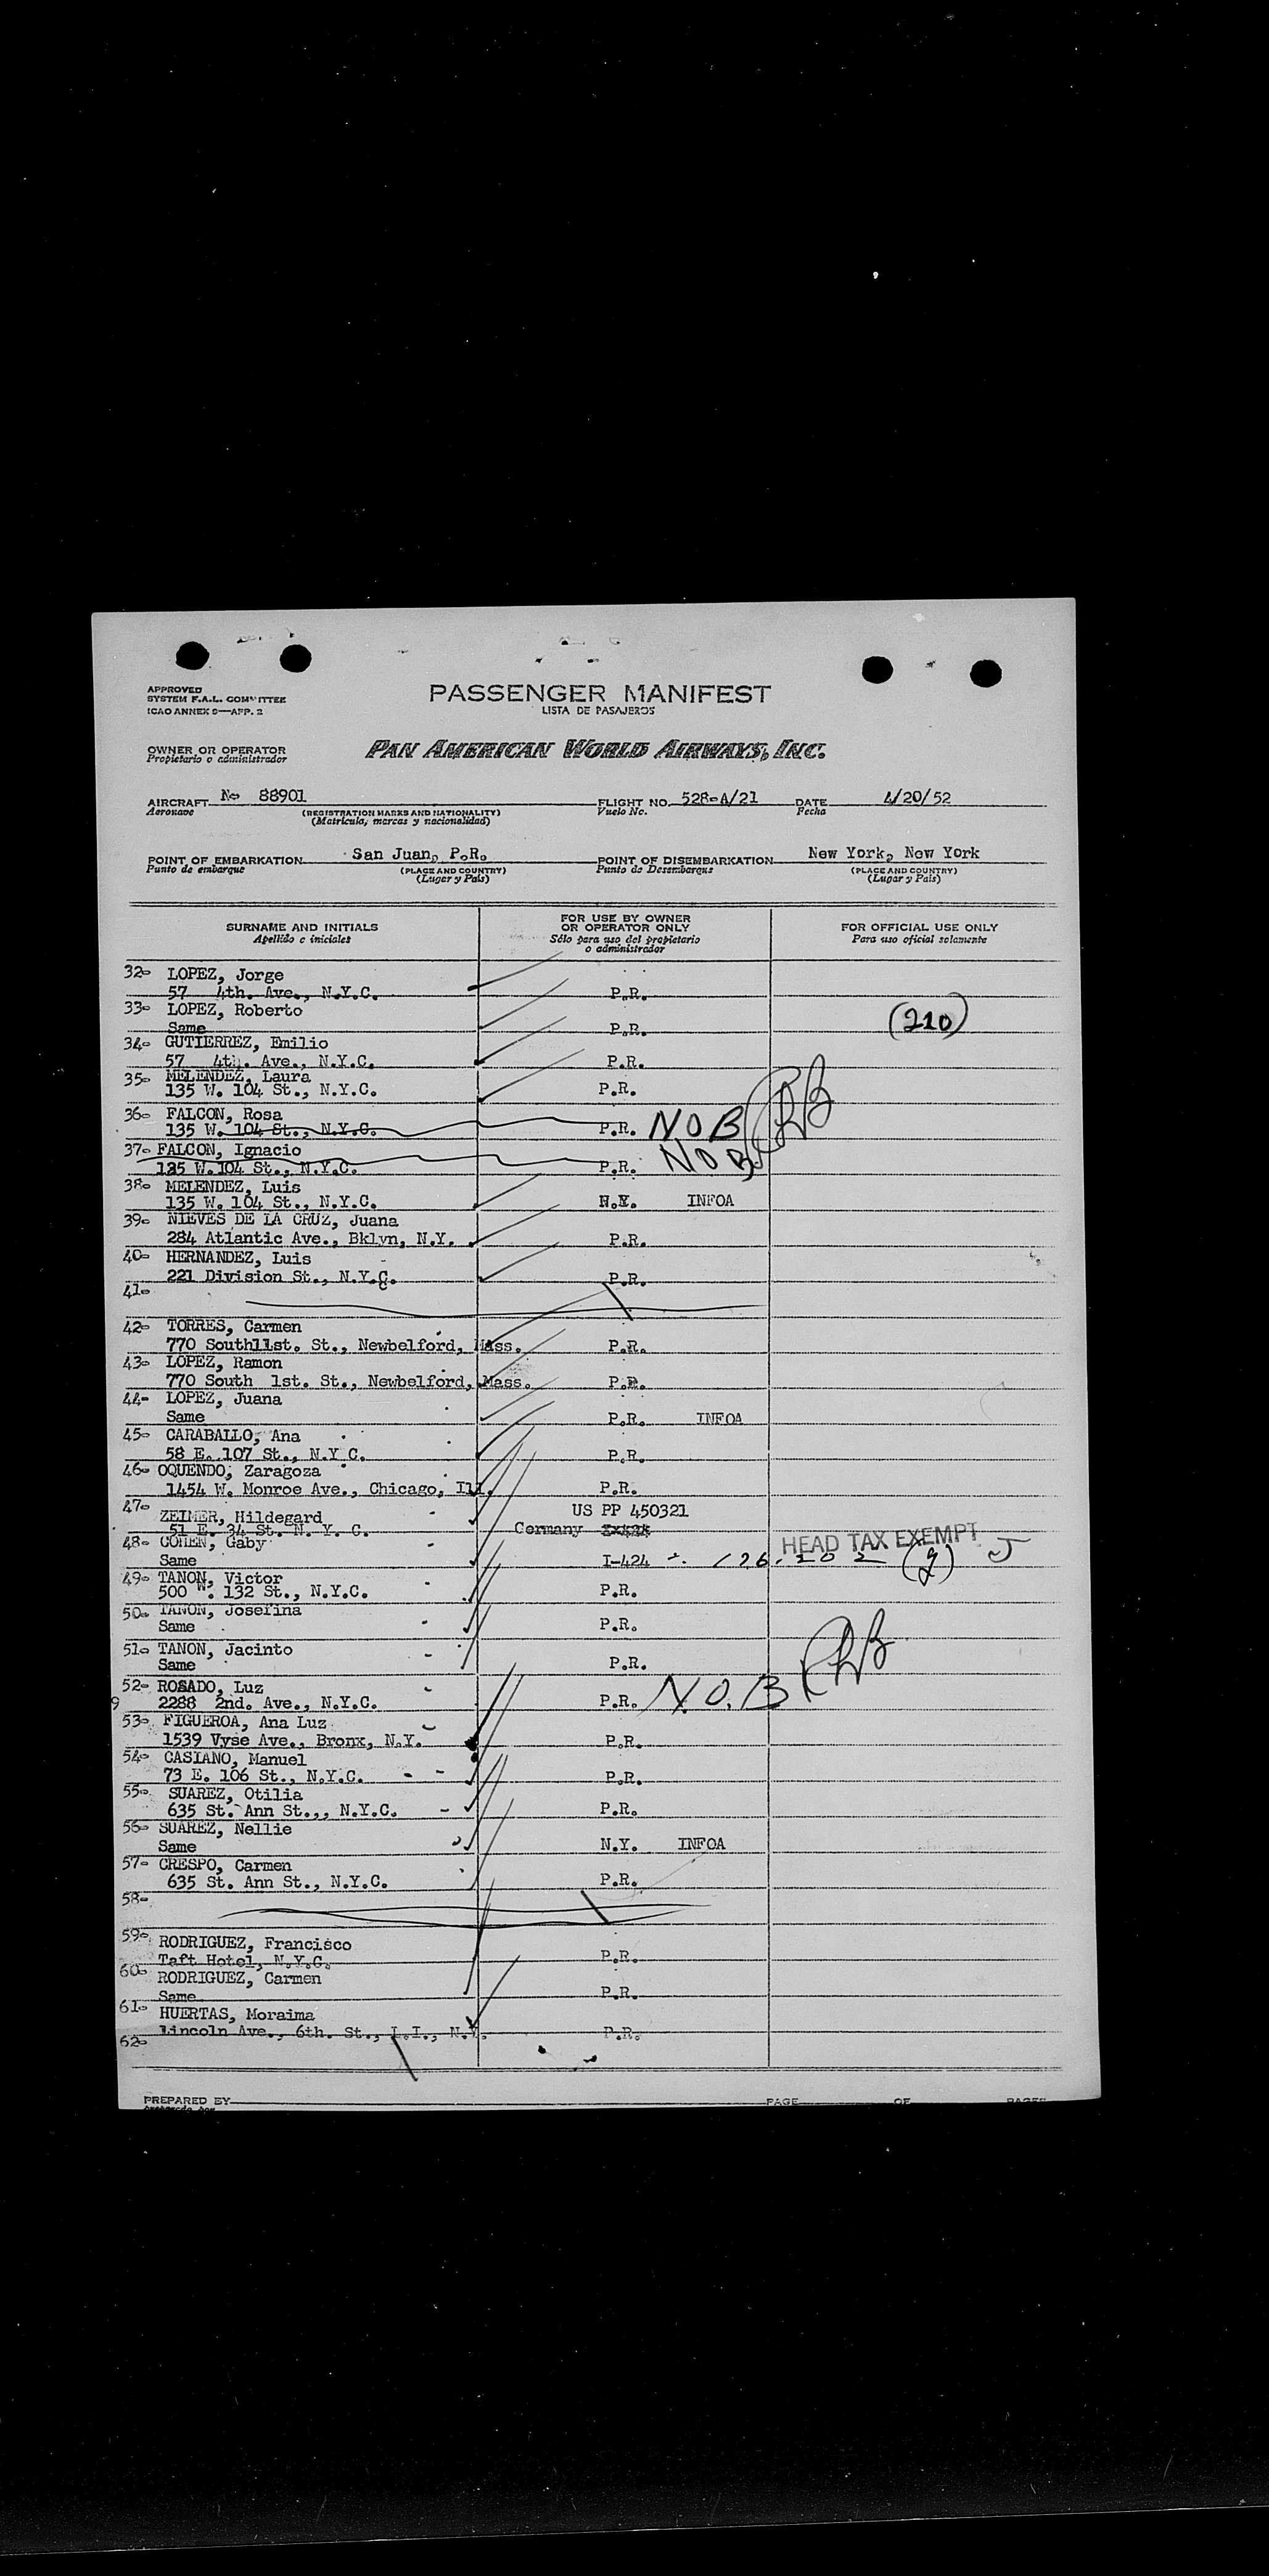 APPROVED
SYSTEM F.A.L. COMMITTEE
ICAO ANNEX 9—APP. 2
PASSENGER MANIFEST
LISTA DE PASAJEROS
OWNER OR OPERATOR
Propietario o administrador
PAN AMERICAN WORLD AIRWAYS, INC.
AIRCRAFT N- 88901 FLIGHT NO. 528-A/21 DATE 4/20/52
Aeronave (REGISTRATION MARKS AND NATIONALITY) Vuelo No. Fecha
(Matrícula, marcas y nacionalidad)
POINT OF EMBARKATION San Juan, P.R. POINT OF DISEMBARKATION New York, New York
Punto de embarque (PLACE AND COUNTRY) Punto de Desembarque (PLACE AND COUNTRY)
(Lugar y País) (Lugar y País)
SURNAME AND INITIALS FOR USE BY OWNER OR OPERATOR ONLY FOR OFFICIAL USE ONLY
Apellido e iniciales Sólo para uso del propietario o administrador Para uso oficial solamente
32- LOPEZ, Jorge
57 4th. Ave., N.Y.C. P.R.
33- LOPEZ, Roberto (210)
Same P.R.
34- GUTIERREZ, Emilio
57 4th. Ave., N.Y.C. P.R.
35- MELENDEZ, Laura
135 W. 104 St., N.Y.C. P.R.
36- FALCON, Rosa
135 W. 104 St., N.Y.C. P.R. NOB
37- FALCON, Ignacio
135 W. 104 St., N.Y.C. P.R. NOB
38- MELENDEZ, Luis
135 W. 104 St., N.Y.C. N.Y. INFOA
39- NIEVES DE LA CRUZ, Juana
284 Atlantic Ave., Bklyn, N.Y. P.R.
40- HERNANDEZ, Luis
221 Division St., N.Y.C. P.R.
41-
42- TORRES, Carmen
770 South11st. St., Newbelford, Mass. P.R.
43- LOPEZ, Ramon
770 South 1st. St., Newbelford, Mass. P.R.
44- LOPEZ, Juana
Same P.R. INFOA
45- CARABALLO, Ana
58 E. 107 St., N.Y C. P.R.
46- OQUENDO, Zaragoza
1454 W. Monroe Ave., Chicago, Ill. P.R.
47- US PP 450321
ZEIMER, Hildegard
51 E. 34 St. N. Y. C. Germany
48- COHEN, Gaby HEAD TAX EXEMPT
Same I-424
49- TANON, Victor
500 W. 132 St., N.Y.C. P.R.
50- TANON, Josefina
Same P.R.
51- TANON, Jacinto
Same P.R.
52- ROSADO, Luz
2288 2nd. Ave., N.Y.C. P.R. N.O.B
53- FIGUEROA, Ana Luz
1539 Vyse Ave., Bronx, N.Y. P.R.
54- CASIANO, Manuel
73 E. 106 St., N.Y.C. P.R.
55- SUAREZ, Otilia
635 St. Ann St.,, N.Y.C. P.R.
56- SUAREZ, Nellie
Same N.Y. INFOA
57- CRESPO, Carmen
635 St. Ann St., N.Y.C. P.R.
58-
59- RODRIGUEZ, Francisco
Taft Hotel, N.Y.C. P.R.
60- RODRIGUEZ, Carmen
Same P.R.
61- HUERTAS, Moraima
Lincoln Ave., 6th. St., L.I., N.Y. P.R.
62-
PREPARED BY PAGE OF PAGES